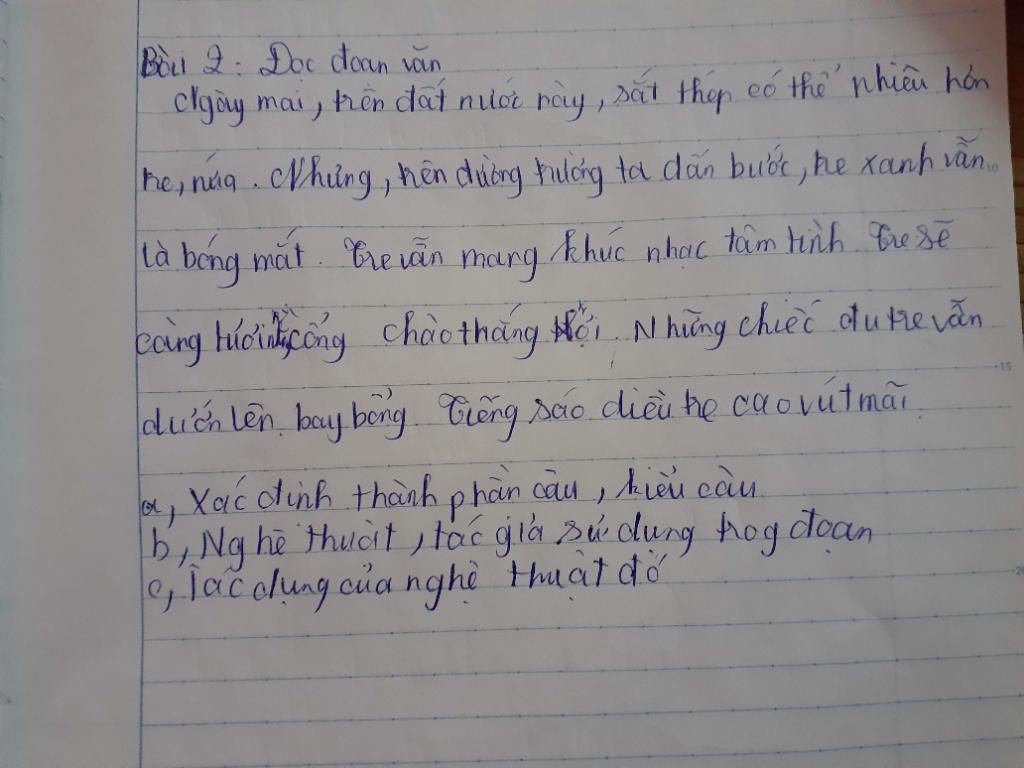 Bài 2: Đọc đoan văn
Ngày mai, trên đất nước này, sắt thép có thể nhiều hơn
tre, nứa. Nhưng, trên đường trường ta dấn bước, tre xanh vẫn
là bóng mát. Tre vẫn mang khúc nhạc tâm tình. Tre sẽ
càng tươi những cổng chào thắng lợi. Những chiếc đu tre vẫn
dướn lên bay bổng. Tiếng sáo diều tre cao vút mãi.
a, Xác định thành phần câu, kiểu câu
b, Nghệ thuật, tác giả sử dung trog đoạn
c, Tác dụng của nghệ thuật đó